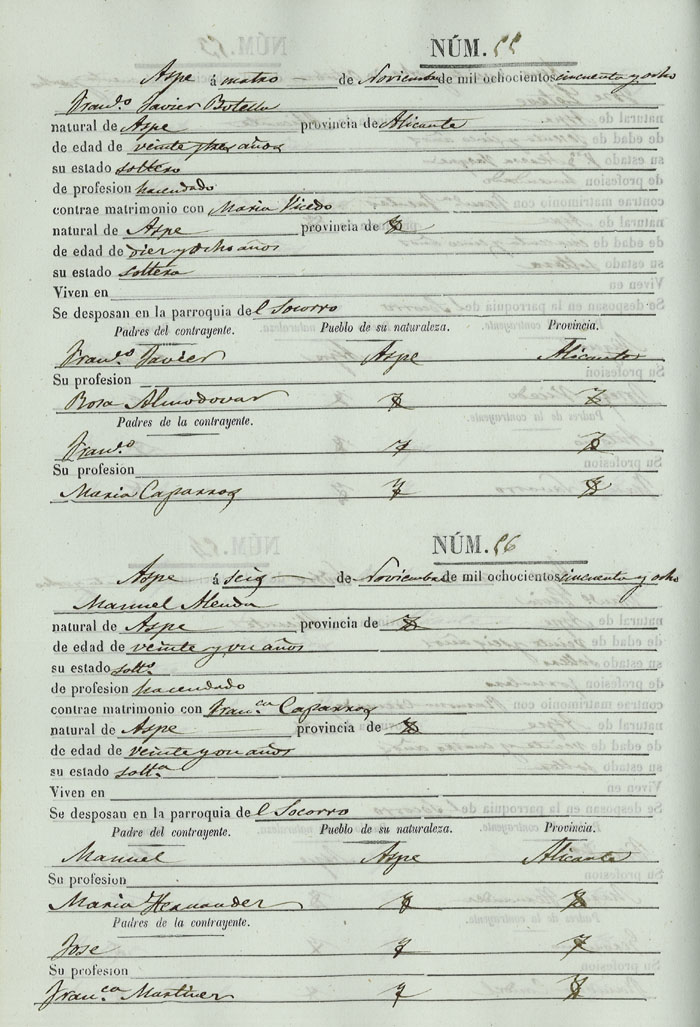 NÚM. 55
Aspe á cuatro de Noviembre de mil ochocientos cincuenta y ocho
Fran.co Javier Botella
natural de Aspe provincia de Alicante
de edad de veinte y tres años
su estado soltero
de profesion hacendado
contrae matrimonio con Maria Vicedo
natural de Aspe provincia de
de edad de diez y ocho años
su estado soltera
Viven en
Se desposan en la parroquia de l Socorro
Padres del contrayente. Pueblo de su naturaleza. Provincia.
Fran.co Javier Aspe Alicante
Su profesion
Rosa Almodovar
Padres de la contrayente.
Fran.co
Su profesion
Maria Caparros
NÚM. 56
Aspe á seis de Noviembre de mil ochocientos cincuenta y ocho
Manuel
natural de Aspe provincia de
de edad de veinte y un años
su estado solt.o
de profesion hacendado
contrae matrimonio con Fran.ca Caparros
natural de Aspe provincia de
de edad de veinte y un años
su estado solt.a
Viven en
Se desposan en la parroquia de l Socorro
Padre del contrayente. Pueblo de su naturaleza. Provincia.
Manuel Aspe Alicante
Su profesion
Maria Hernandez
Padres de la contrayente.
Jose
Su profesion
Fran.ca Martinez